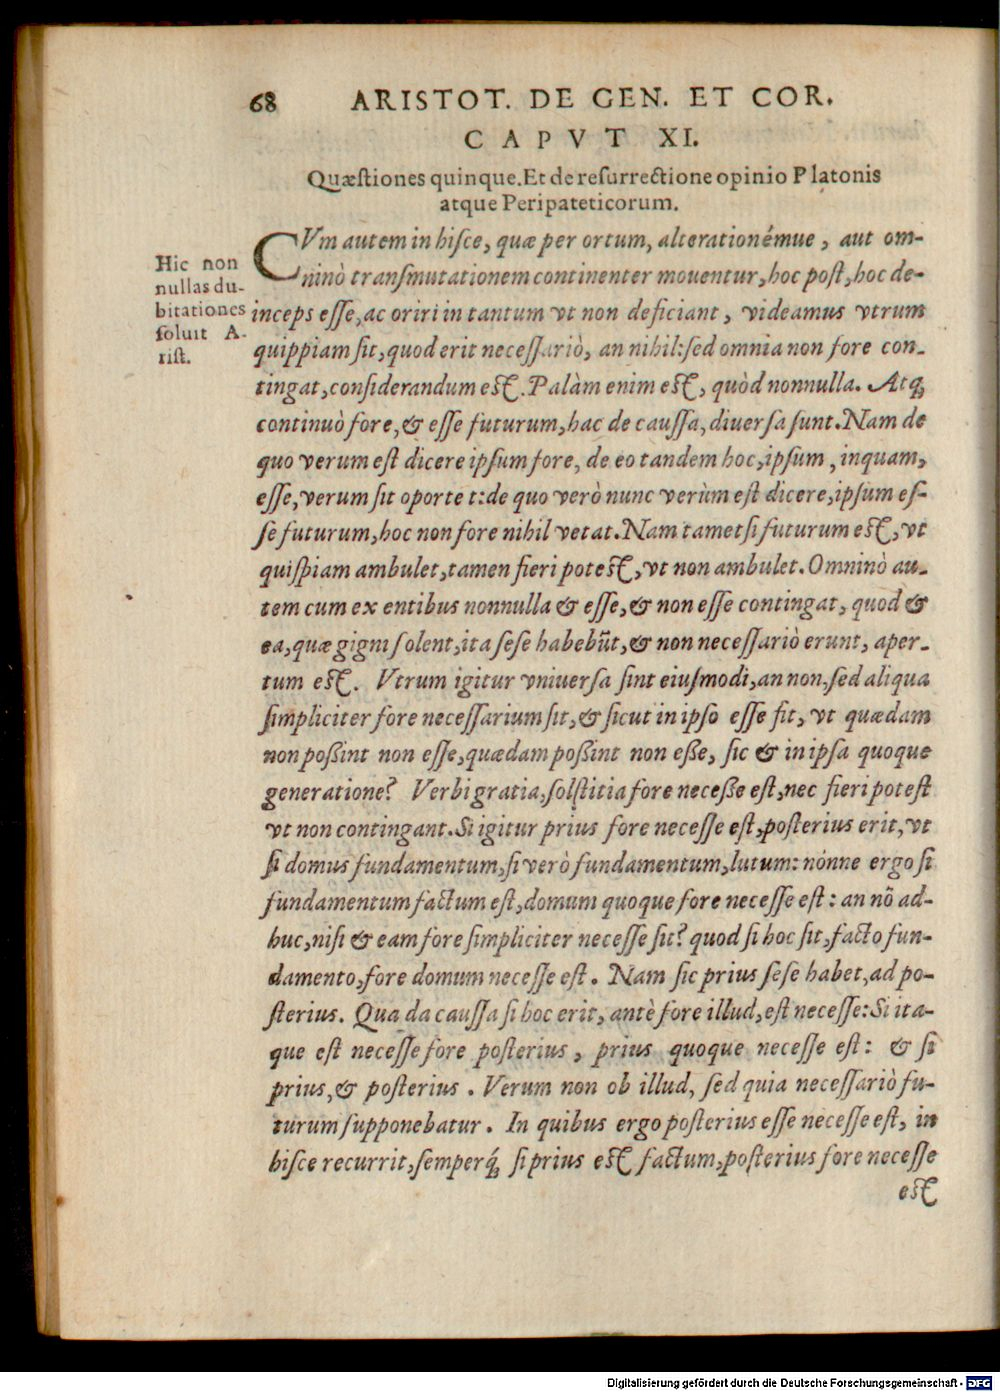 68 ARISTOT. DE GEN. ET COR.
CAPVT XI.
Quæstiones quinque. Et de resurrectione opinio Platonis
atque Peripateticorum.
Hic non
nullas du-
bitationes
soluit A-
rist.
CVm autem in hisce, quæ per ortum, alterationémue, aut om-
ninò transmutationem continenter mouentur, hoc post, hoc de-
inceps esse, ac oriri in tantum vt non deficiant, videamus vtrum
quippiam sit, quod erit necessariò, an nihil: sed omnia non fore con-
tingat, considerandum est. Palàm enim est, quòd nonnulla. Atq;
continuò fore, & esse futurum, hac de caussa, diuersa sunt. Nam de
quo verum est dicere ipsum fore, de eo tandem hoc, ipsum, inquam,
esse, verum sit oportet: de quo verò nunc verùm est dicere, ipsum es-
se futurum, hoc non fore nihil vetat. Nam tametsi futurum est, vt
quispiam ambulet, tamen fieri potest, vt non ambulet. Omninò au-
tem cum ex entibus nonnulla & esse, & non esse contingat, quod &
ea, quæ gigni solent, ita sese habebũt, & non necessariò erunt, aper-
tum est. Vtrum igitur vniuersa sint eiusmodi, an non, sed aliqua
simpliciter fore necessarium sit, & sicut in ipso esse fit, vt quædam
non poßint non esse, quædam poßint non eße, sic & in ipsa quoque
generatione? Verbi gratia, solstitia fore neceße est, nec fieri potest
vt non contingant. Si igitur prius fore necesse est, posterius erit, vt
si domus fundamentum, si verò fundamentum, lutum: nónne ergo si
fundamentum factum est, domum quoque fore necesse est: an nõ ad-
huc, nisi & eam fore simpliciter necesse sit? quod si hoc sit, facto fun-
damento, fore domum necesse est. Nam sic prius sese habet, ad po-
sterius. Qua da caussa si hoc erit, antè fore illud, est necesse: Si ita-
que est necesse fore posterius, prius quoque necesse est: & si
prius, & posterius. Verum non ob illud, sed quia necessariò fu-
turum supponebatur. In quibus ergo posterius esse necesse est, in
hisce recurrit, semperq́; si prius est factum, posterius fore necesse
est
Digitalisierung gefördert durch die Deutsche Forschungsgemeinschaft - DFG